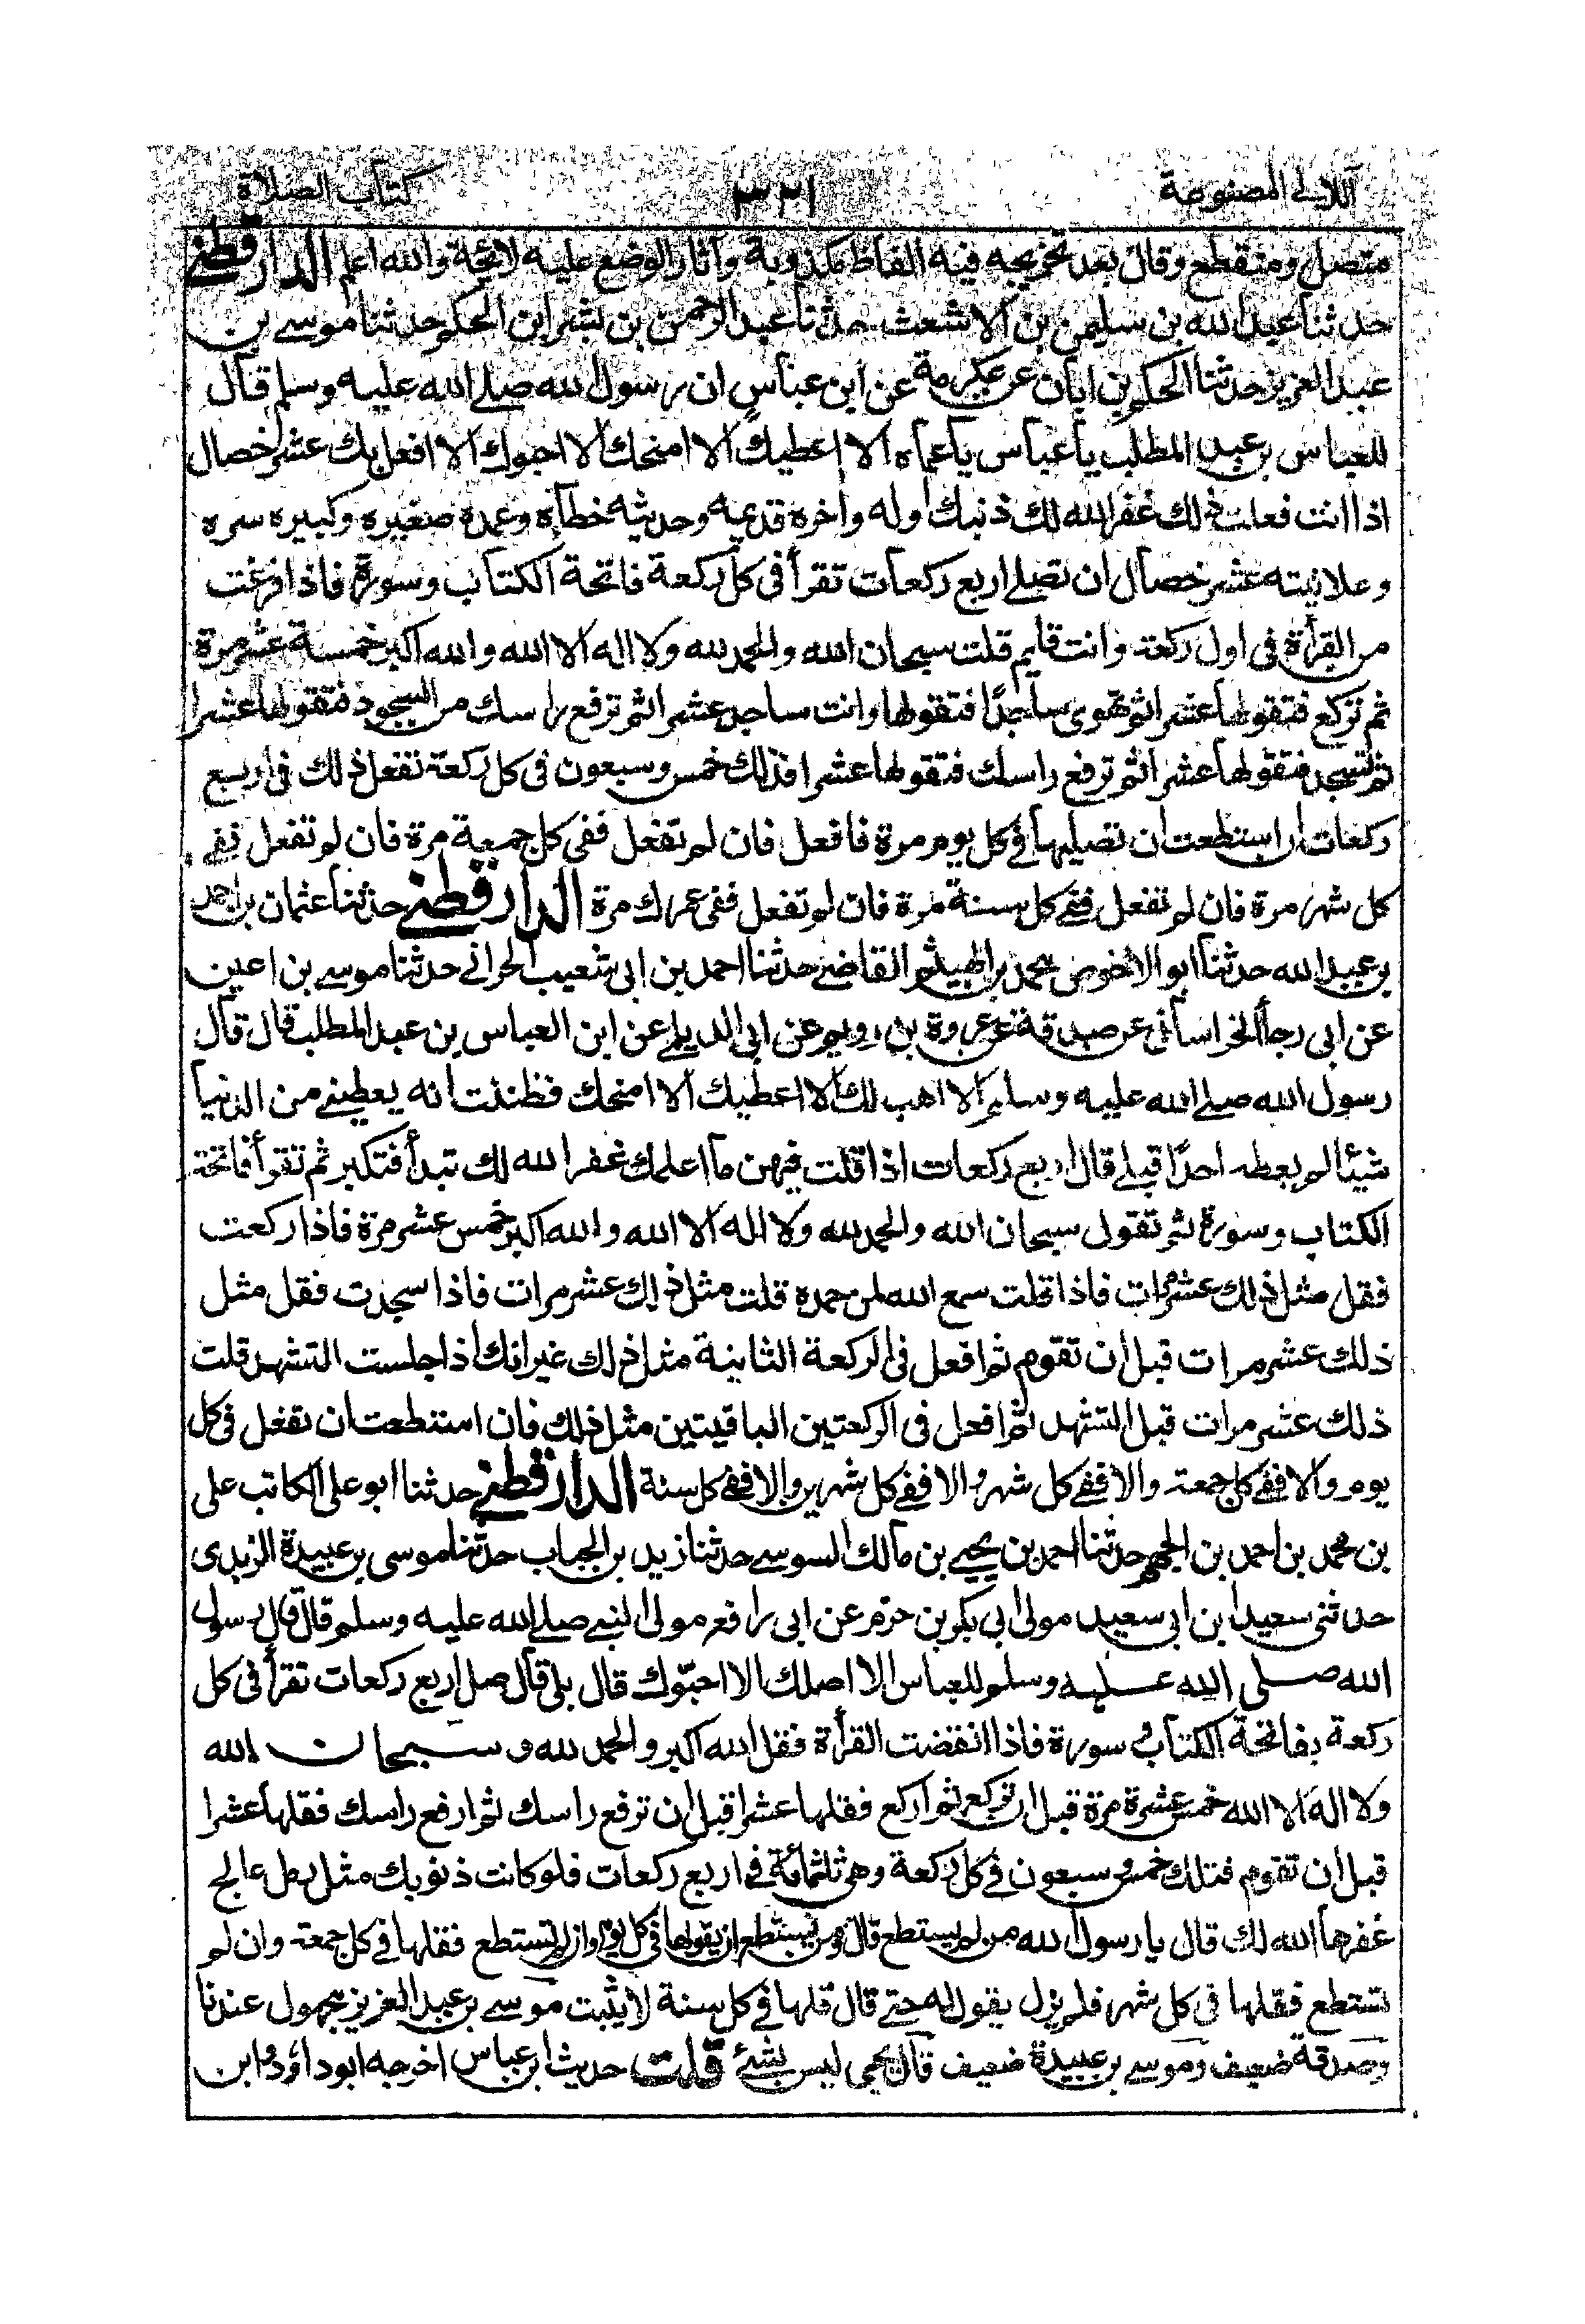 اللآلى المصنوعة ٣٢١ كتاب الصلاة
متصل ومنقطع وقال بعد تخريجه فيه الفاظ مكذوبة وآثار الوضع عليه لائحة والله اعلم الدارقطنے
حدثنا عبد الله بن سليمن بن الاشعث حدثنا عبد الرحمن بن بشر ابن الحكم حدثنا موسے بن
عبد العزيز حدثنا الحكم بن ابان عن عكرمة عن ابن عباس ان رسول الله صلے الله عليه وسلم قال
للعباس بن عبد المطلب يا عباس يا عماه الا اعطيك الا امنحك الا احبوك الا افعل بك عشر خصال
اذا انت فعلت ذلك غفر الله لك ذنبك اوله واخره قديمه وحديثه خطأه وعمده صغيره وكبيره سره
وعلانيته عشر خصال ان تصلے اربع ركعات تقرأ فى كل ركعة فاتحة الكتاب وسورة فاذا فرغت
من القرأة فى اول ركعة وانت قايم قلت سبحان الله والحمد لله ولا اله الا الله والله اكبر خمسة عشر مرة
ثم تركع فتقولها عشرا ثم تهوى ساجدًا فتقولها وانت ساجد عشرا ثم ترفع راسك من السجود فتقولها عشرا
ثم تسجد فتقولها عشرا ثم ترفع راسك فتقولها عشرا فذلك خمس وسبعون فى كل ركعة تفعل ذلك فى اربع
ركعات ان استطعت ان تصليها فى كل يوم مرة فافعل فان لم تفعل ففى كل جمعة مرة فان لم تفعل ففے
كل شهر مرة فان لم تفعل ففے كل سنة مرة فان لم تفعل ففى عمرك مرة الدارقطنے حدثنا عثمان بن احمد
بن عبد الله حدثنا ابو الاحوص محمد بن الهيثم القاضے حدثنا احمد بن ابى شعيب الحرانے حدثنا موسے بن اعين
عن ابى رجأ الخراسانى عن صدقة عن عروة بن رويم عن ابى الديلمے عن ابن العباس بن عبد المطلب قال قال
رسول الله صلے الله عليه وسلم الا اهب لك الا اعطيك الا امنحك فظننت انه يعطينے من الدنيا
شيئا لم يعطه احدًا قبلے قال اربع ركعات اذا قلت فيهن ما اعلمك غفر الله لك تبدأ فتكبر ثم تقرأ فاتحة
الكتاب وسورة ثم تقول سبحان الله والحمد لله ولا اله الا الله والله اكبر خمس عشر مرة فاذا ركعت
فقل مثل ذلك عشر مرات فاذا قلت سمع الله لمن حمده قلت مثل ذلك عشر مرات فاذا سجدت فقل مثل
ذلك عشر مرات قبل ان تقوم ثم افعل فى الركعة الثانية مثل ذلك غير انك اذا جلست التشهد قلت
ذلك عشر مرات قبل التشهد ثم افعل فى الركعتين الباقيتين مثل ذلك فان استطعت ان تفعل فى كل
يوم والا ففے كل جمعة والا ففے كل شهر والا ففے كل شهرين والا ففے كل سنة الدارقطنے حدثنا ابو على الكاتب على
بن محمد بن احمد بن الجهم حدثنا احمد بن يحيے بن مالك السوسے حدثنا زيد بن الحباب حدثنا موسى بن عبيدة الزبدى
حدثنى سعيد ابن ابى سعيد مولى ابى بكر بن حزم عن ابى رافع مولى النبے صلے الله عليه وسلم قال قال رسول
الله صلى الله عليه وسلم للعباس الا اصلك الا احبّوك قال بلى قال صل اربع ركعات تقرأ فى كل
ركعة بفاتحة الكتاب وسورة فاذا انقضت القرأة فقل الله اكبر والحمد لله وسبحان الله
ولا اله الا الله خمس عشرة مرة قبل ان تركع ثم اركع فقلها عشرا قبل ان ترفع راسك ثم ارفع راسك فقلها عشرا
قبل ان تقوم فتلك خمس وسبعون فے كل ركعة وهى ثلثمائة فے اربع ركعات فلو كانت ذنوبك مثل رمل عالج
غفرها الله لك قال يا رسول الله من لم يستطع قال ومن يستطع ان يقولها فى كل يوم وان لم تستطع فقلها فے كل جمعة وان لم
تستطع فقلها فى كل شهر فلم يزل يقول له حتے قال قلها فے كل سنة لا يثبت موسے بن عبد العزيز مجهول عندنا
وصدقة ضعيف وموسے بن عبيدة ضعيف قال يحيى ليس بشئ قلت حديث ابن عباس اخرجه ابو داؤد وابن